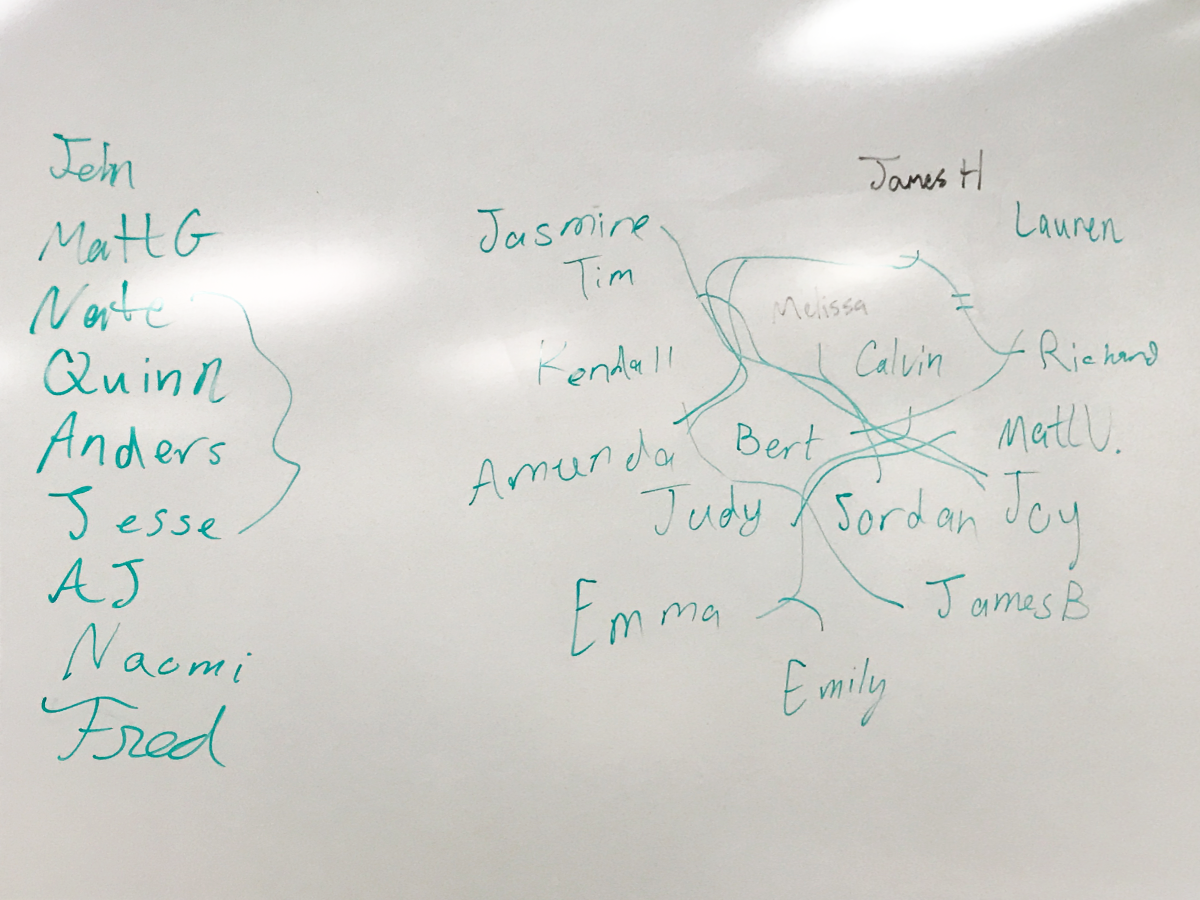 John
Matt G
Nate
Quinn
Anders
Jesse
AJ
Naomi
Fred
James H
Jasmine
Lauren
Tim
Melissa
Kendall
Calvin
Richard
Amanda
Bert
Matt V.
Judy
Jordan
Joy
Emma
James B
Emily